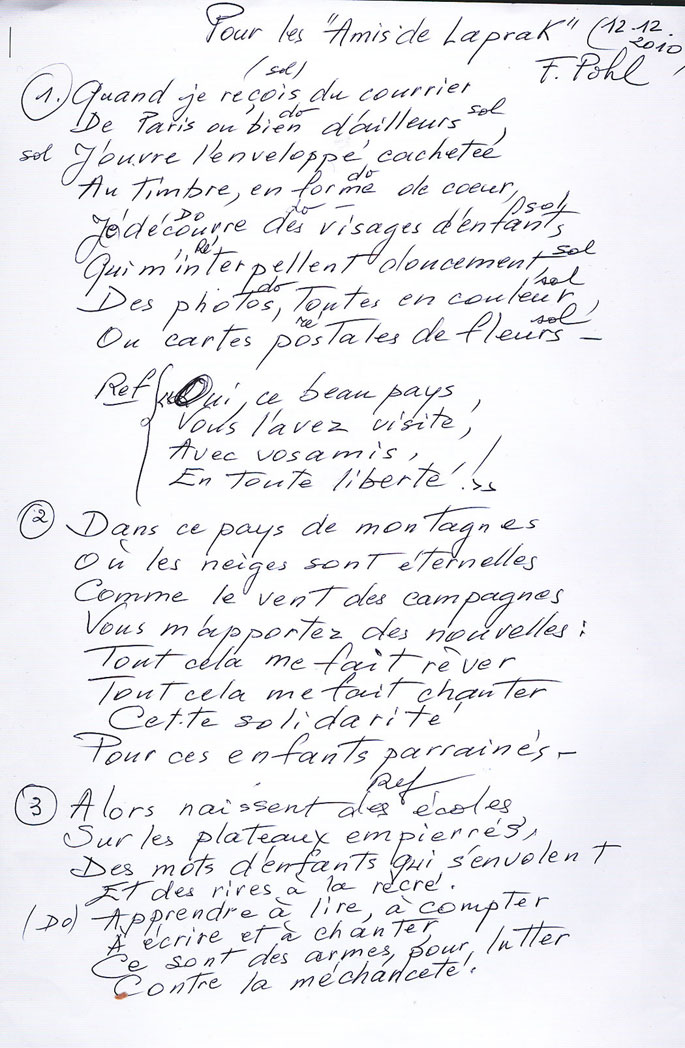 Pour les "Amis de Laprak" (12-12-2010)
F. Pohl
(sol)
1. Quand je reçois du courrier
do sol
De Paris ou bien d'ailleurs,
sol J'ouvre l'enveloppe cachetée
do
Au timbre, en forme de coeur,
Do do sol
Je découvre des visages d'enfants
Ré sol
Qui m'interpellent doucement
do sol
Des photos, toutes en couleur,
ré sol
Ou cartes postales de fleurs –
Ref { «Oui, ce beau pays,
Vous l'avez visité,
Avec vos amis,
En toute liberté! »
2 Dans ce pays de montagnes
Où les neiges sont éternelles
Comme le vent des campagnes
Vous m'apportez des nouvelles :
Tout cela me fait rêver
Tout cela me fait chanter
Cette solidarité
Pour ces enfants parrainés –
Ref
3 Alors naissent des écoles
Sur les plateaux empierrés,
Des mots d'enfants qui s'envolent
Et des rires à la récré.
(Do) Apprendre à lire, à compter
À écrire et à chanter
Ce sont des armes, pour lutter
Contre la méchanceté!